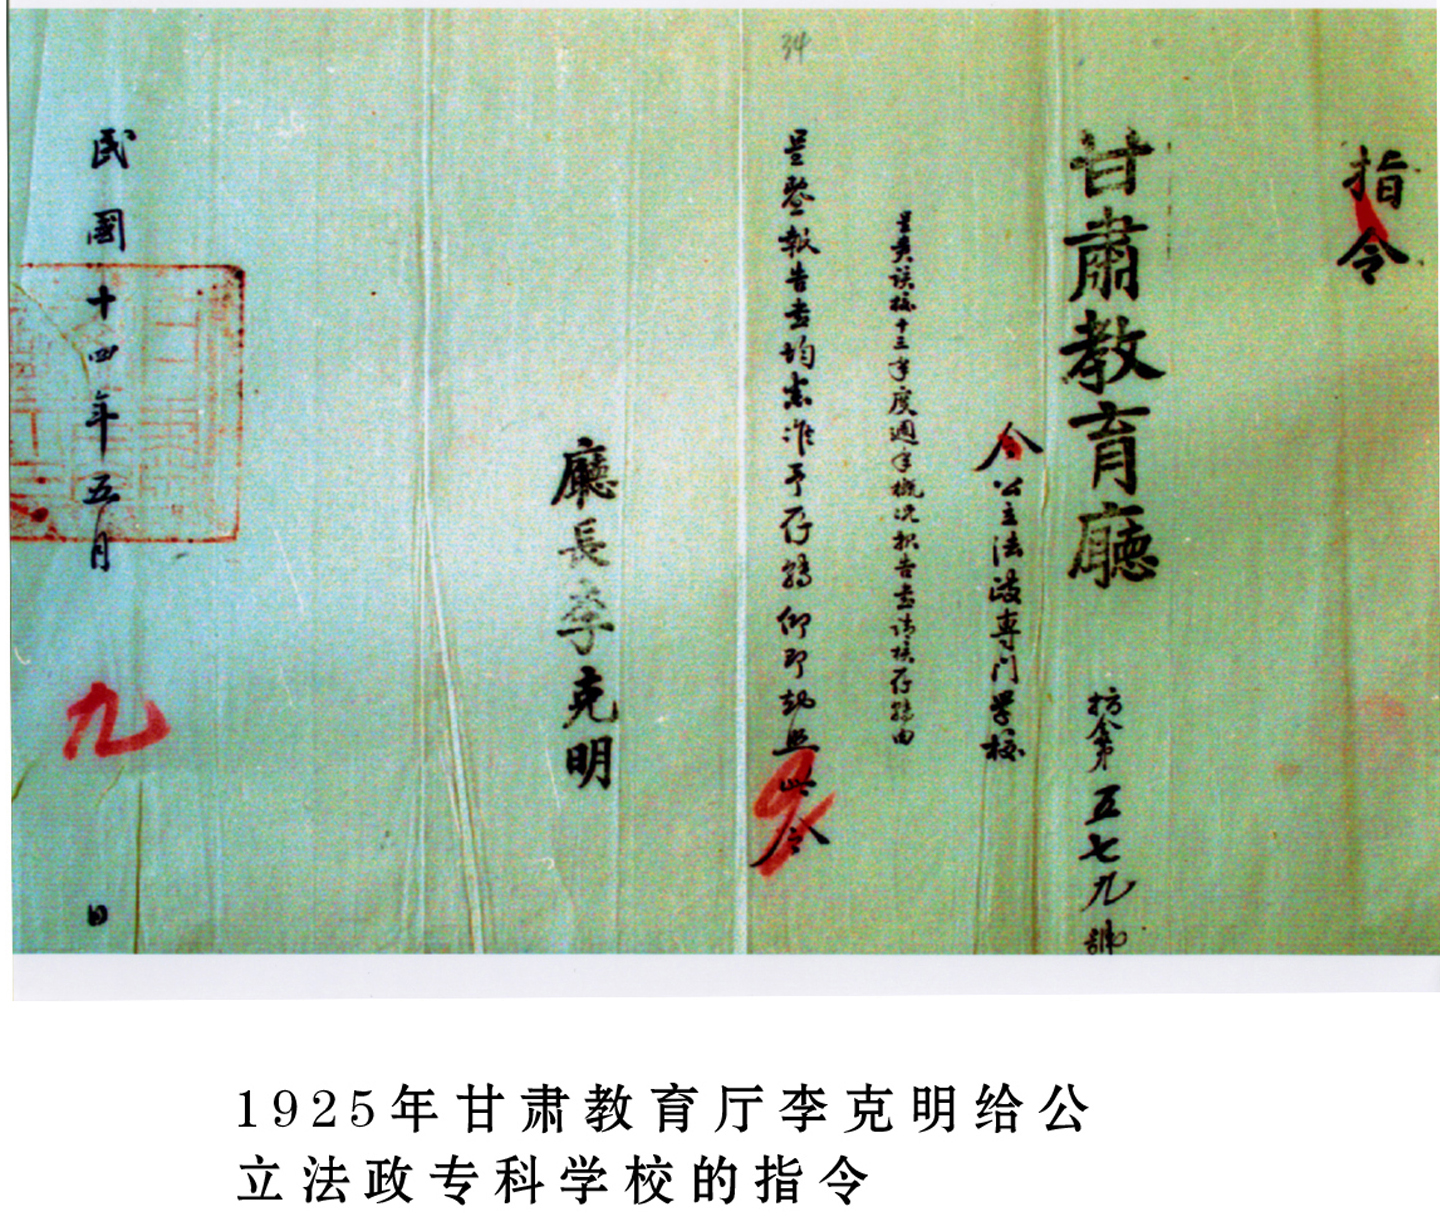 34
指令
甘肅教育廳 指令第五七九號
令公立法政專門學校
呈賫該校十三年度週年概况报告書請核存轉由
呈暨報告書均悉准予存轉仰即知照此令
廳長李克明
民國十四年五月九日
1925年甘肃教育厅李克明给公
立法政专科学校的指令